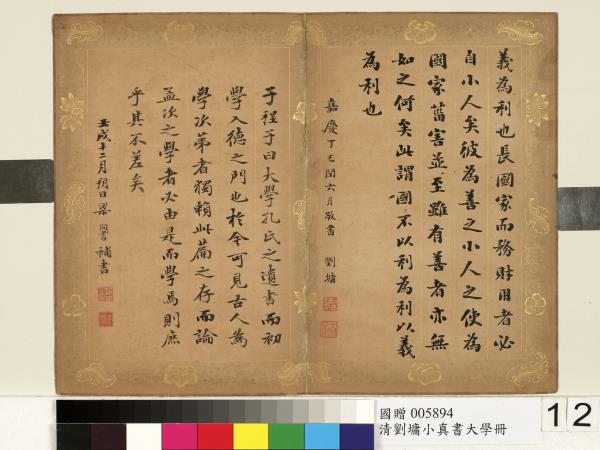 義為利也長國家而務財用者必
自小人矣彼為善之小人之使為
國家菑害並至雖有善者亦無
如之何矣此謂國不以利為利以義
為利也
嘉慶丁巳閏六月敬書 劉墉
子程子曰大學孔氏之遺書而初
學入德之門也於今可見古人為
學次第者獨賴此篇之存而論
孟次之學者必由是而學焉則庶
乎其不差矣
壬戌十二月朔日梁同書補書
國贈 005894
清劉墉小真書大學冊
12